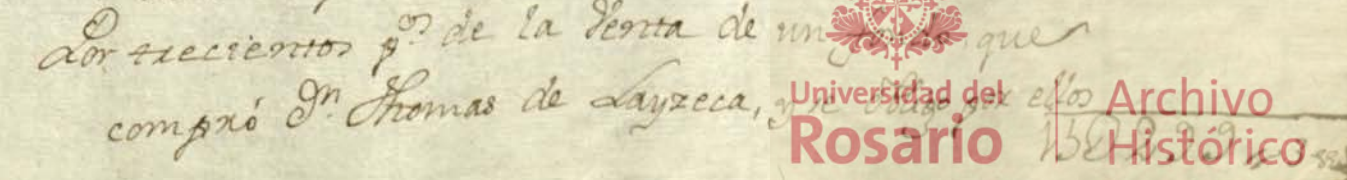 Por trecientos p.os de la Venta de un que
compró Dn. Thomas de Layzeca, y se ellos
Universidad del
Rosario
Archivo
Histórico